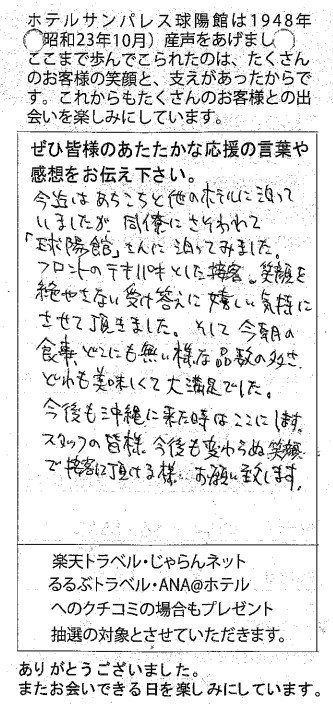 ホテルサンパレス球陽館は1948年
(昭和23年10月）産声をあげまし
ここまで歩んでこられたのは、たくさん
のお客様の笑顔と、支えがあったからで
す。これからもたくさんのお客様との出
会いを楽しみにしています。
ぜひ皆様のあたたかな応援の言葉や
感想をお伝え下さい。
今迄はあちこちと他のホテルに泊って
いましたが、同僚にさそわれて
「球陽館」さんに泊ってみました。
フロントのテキパキとした接客。笑顔を
絶やさない受け答えに嬉しい気持に
させて頂きました。そして今朝の
食事、どこにも無い様な品数の多さ、
どれも美味しくて大満足でした。
今後も沖縄に来た時はここにします。
スタッフの皆様、今後も変わらぬ笑顔
で接客に頂ける様、お願い致します。
楽天トラベル・じゃらんネット
るるぶトラベル・ANA@ホテル
へのクチコミの場合もプレゼント
抽選の対象とさせていただきます。
ありがとうございました。
またお会いできる日を楽しみにしています。